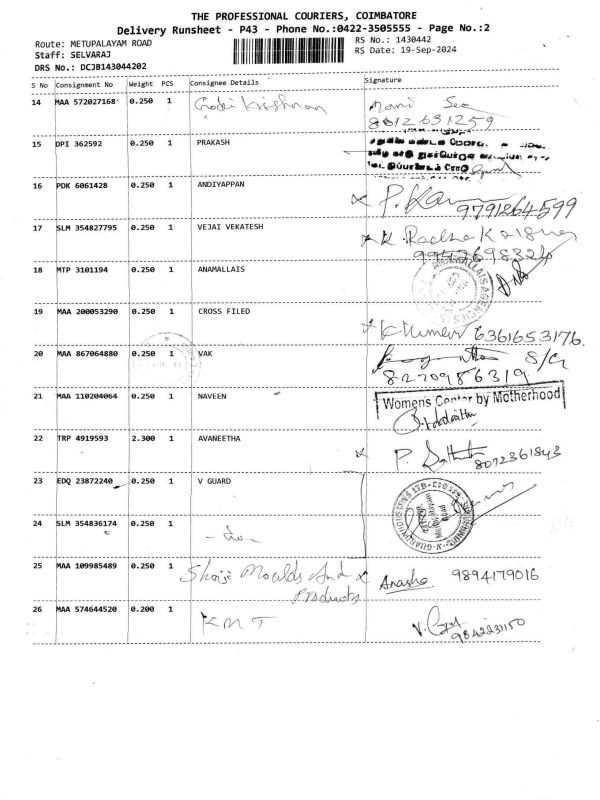 THE PROFESSIONAL COURIERS, COIMBATORE
Delivery Runsheet - P43 - Phone No.:0422-3505555 - Page No.:2
Route: METUPALAYAM ROAD
RS No.: 1430442
Staff: SELVARAJ
RS Date: 19-Sep-2024
DRS No.: DCJB143044202
S No Consignment No Weight PCS Consignee Details Signature
14 MAA 572027168 0.250 1 Gobi Krishnan Mani
8012631259
15 DPI 362592 0.250 1 PRAKASH
16 PDK 6061428 0.250 1 ANDIYAPPAN P.
9791264599
17 SLM 354827795 0.250 1 VEJAI VEKATESH K. Radha
9952698324
18 MTP 3101194 0.250 1 ANAMALLAIS
19 MAA 200053290 0.250 1 CROSS FILED K Kumar 6361653176
20 MAA 867064880 0.250 1 VAK
8270986319
21 MAA 110204064 0.250 1 NAVEEN Women's Center by Motherhood
22 TRP 4919593 2.300 1 AVANEETHA P.
8072361843
23 EDQ 23872240 0.250 1 V GUARD
24 SLM 354836174 0.250 1 - do -
25 MAA 109985489 0.250 1 Moulds And 9894179016
Products
26 MAA 574644520 0.200 1 KMT V.
9842231150